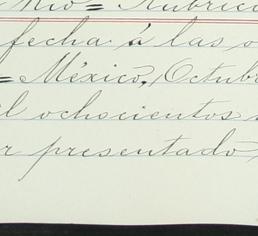 Rio= Rubrica
fecha á las o
= México, Octubr
l ochocientos
r presentado